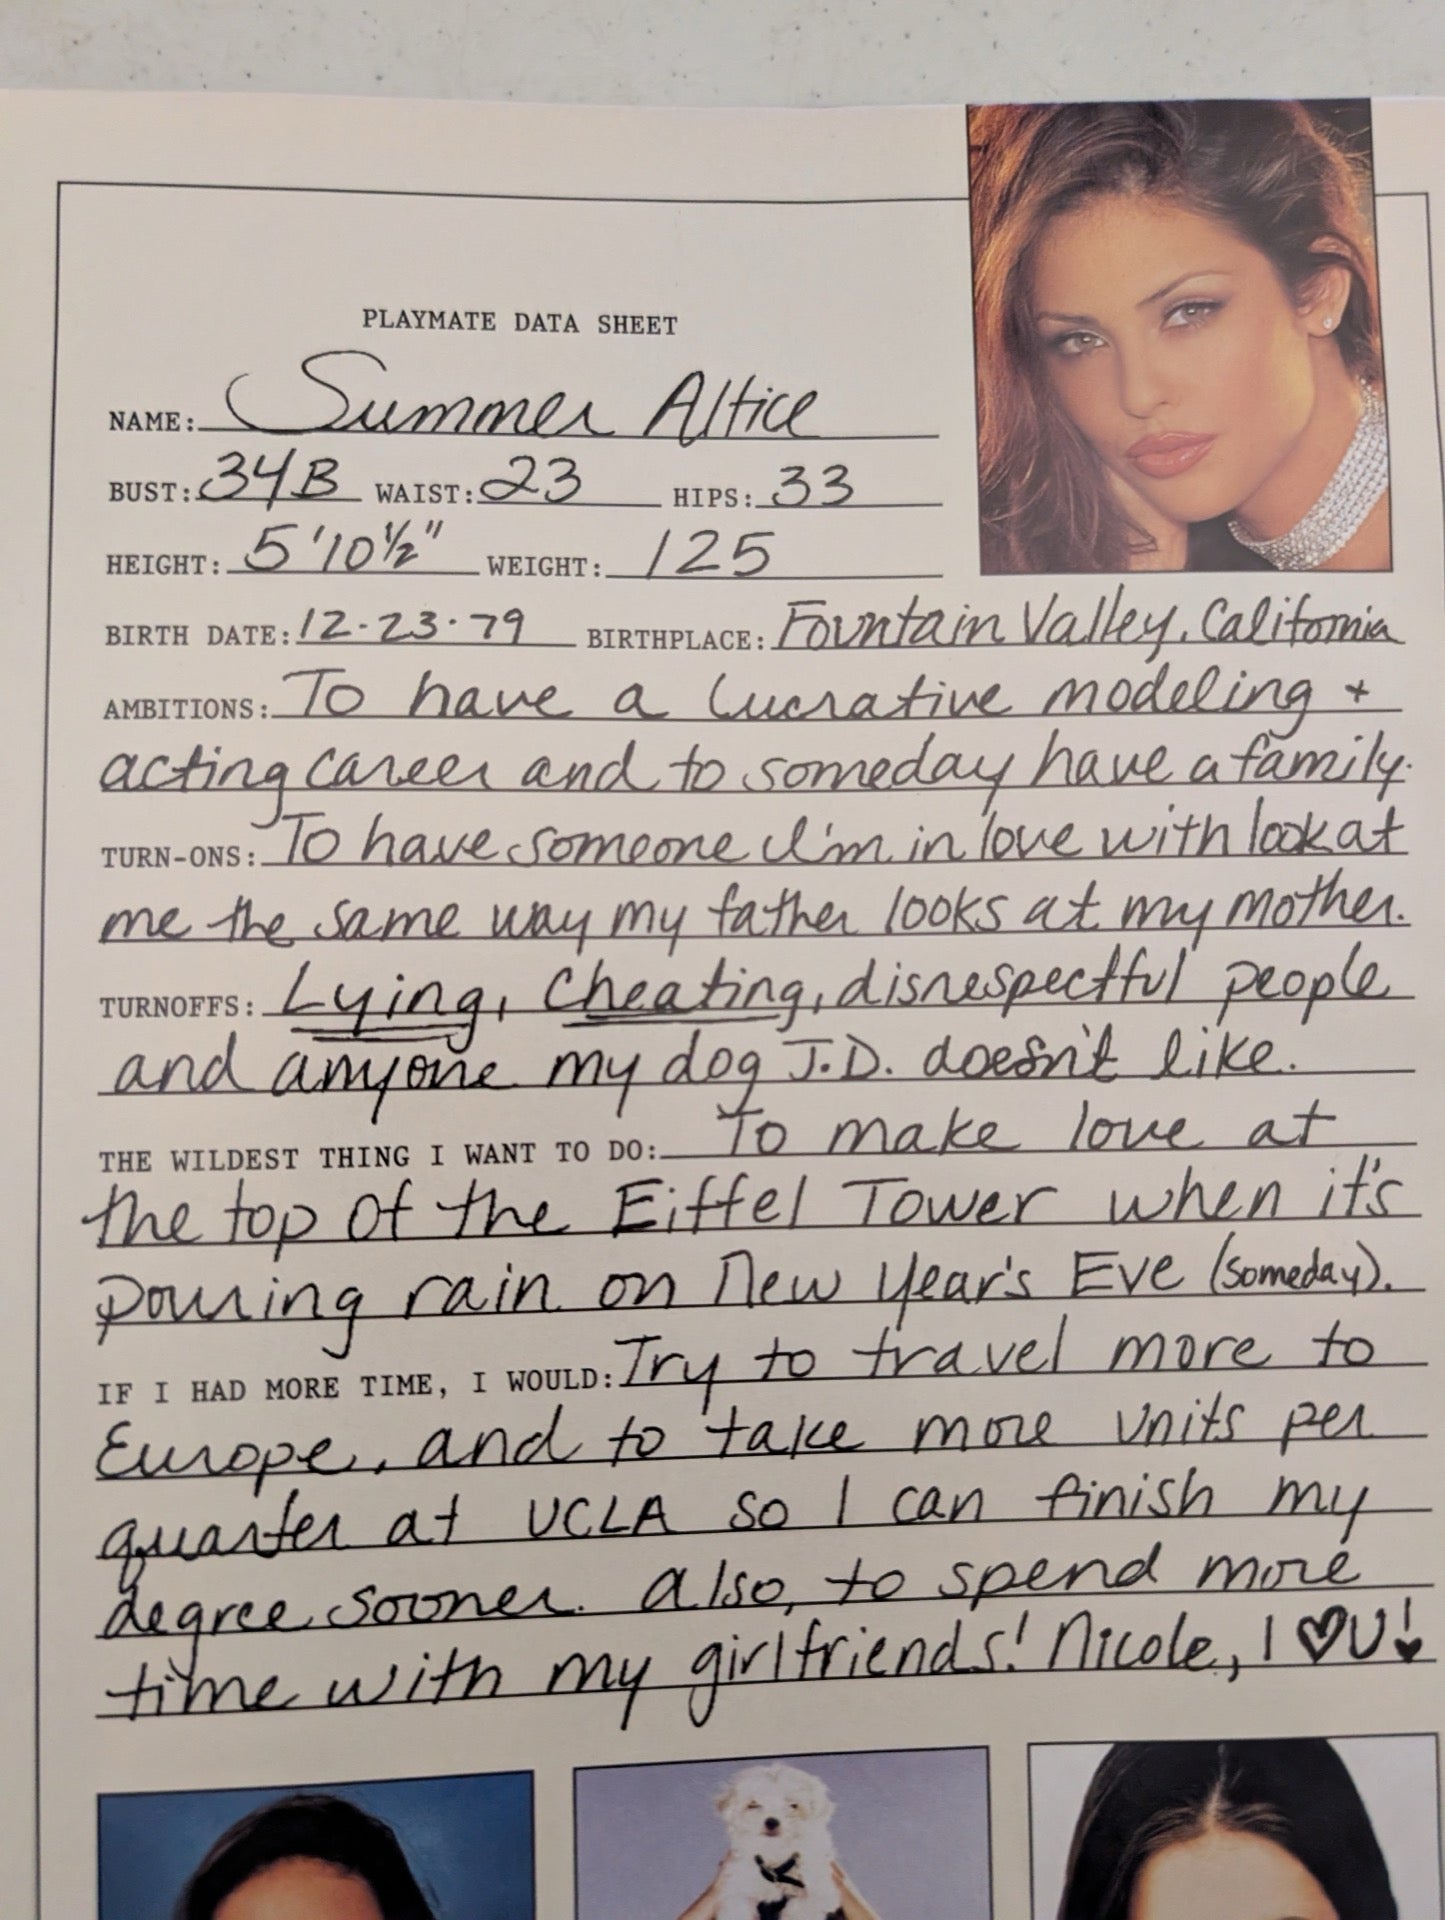 PLAYMATE DATA SHEET
NAME: Summer Altice
BUST: 34B WAIST: 23 HIPS: 33
HEIGHT: 5'10½" WEIGHT: 125
BIRTH DATE: 12-23-79 BIRTHPLACE: Fountain Valley, California
AMBITIONS: To have a lucrative modeling +
acting career and to someday have a family.
TURN-ONS: To have someone I'm in love with look at
me the same way my father looks at my mother.
TURNOFFS: Lying, Cheating, disrespectful people
and anyone my dog J.D. doesn't like.
THE WILDEST THING I WANT TO DO: To make love at
the top of the Eiffel Tower when it's
pouring rain on New Year's Eve (someday).
IF I HAD MORE TIME, I WOULD: Try to travel more to
Europe, and to take more units per
quarter at UCLA so I can finish my
degree sooner. Also, to spend more
time with my girlfriends! Nicole, I ♥ U!